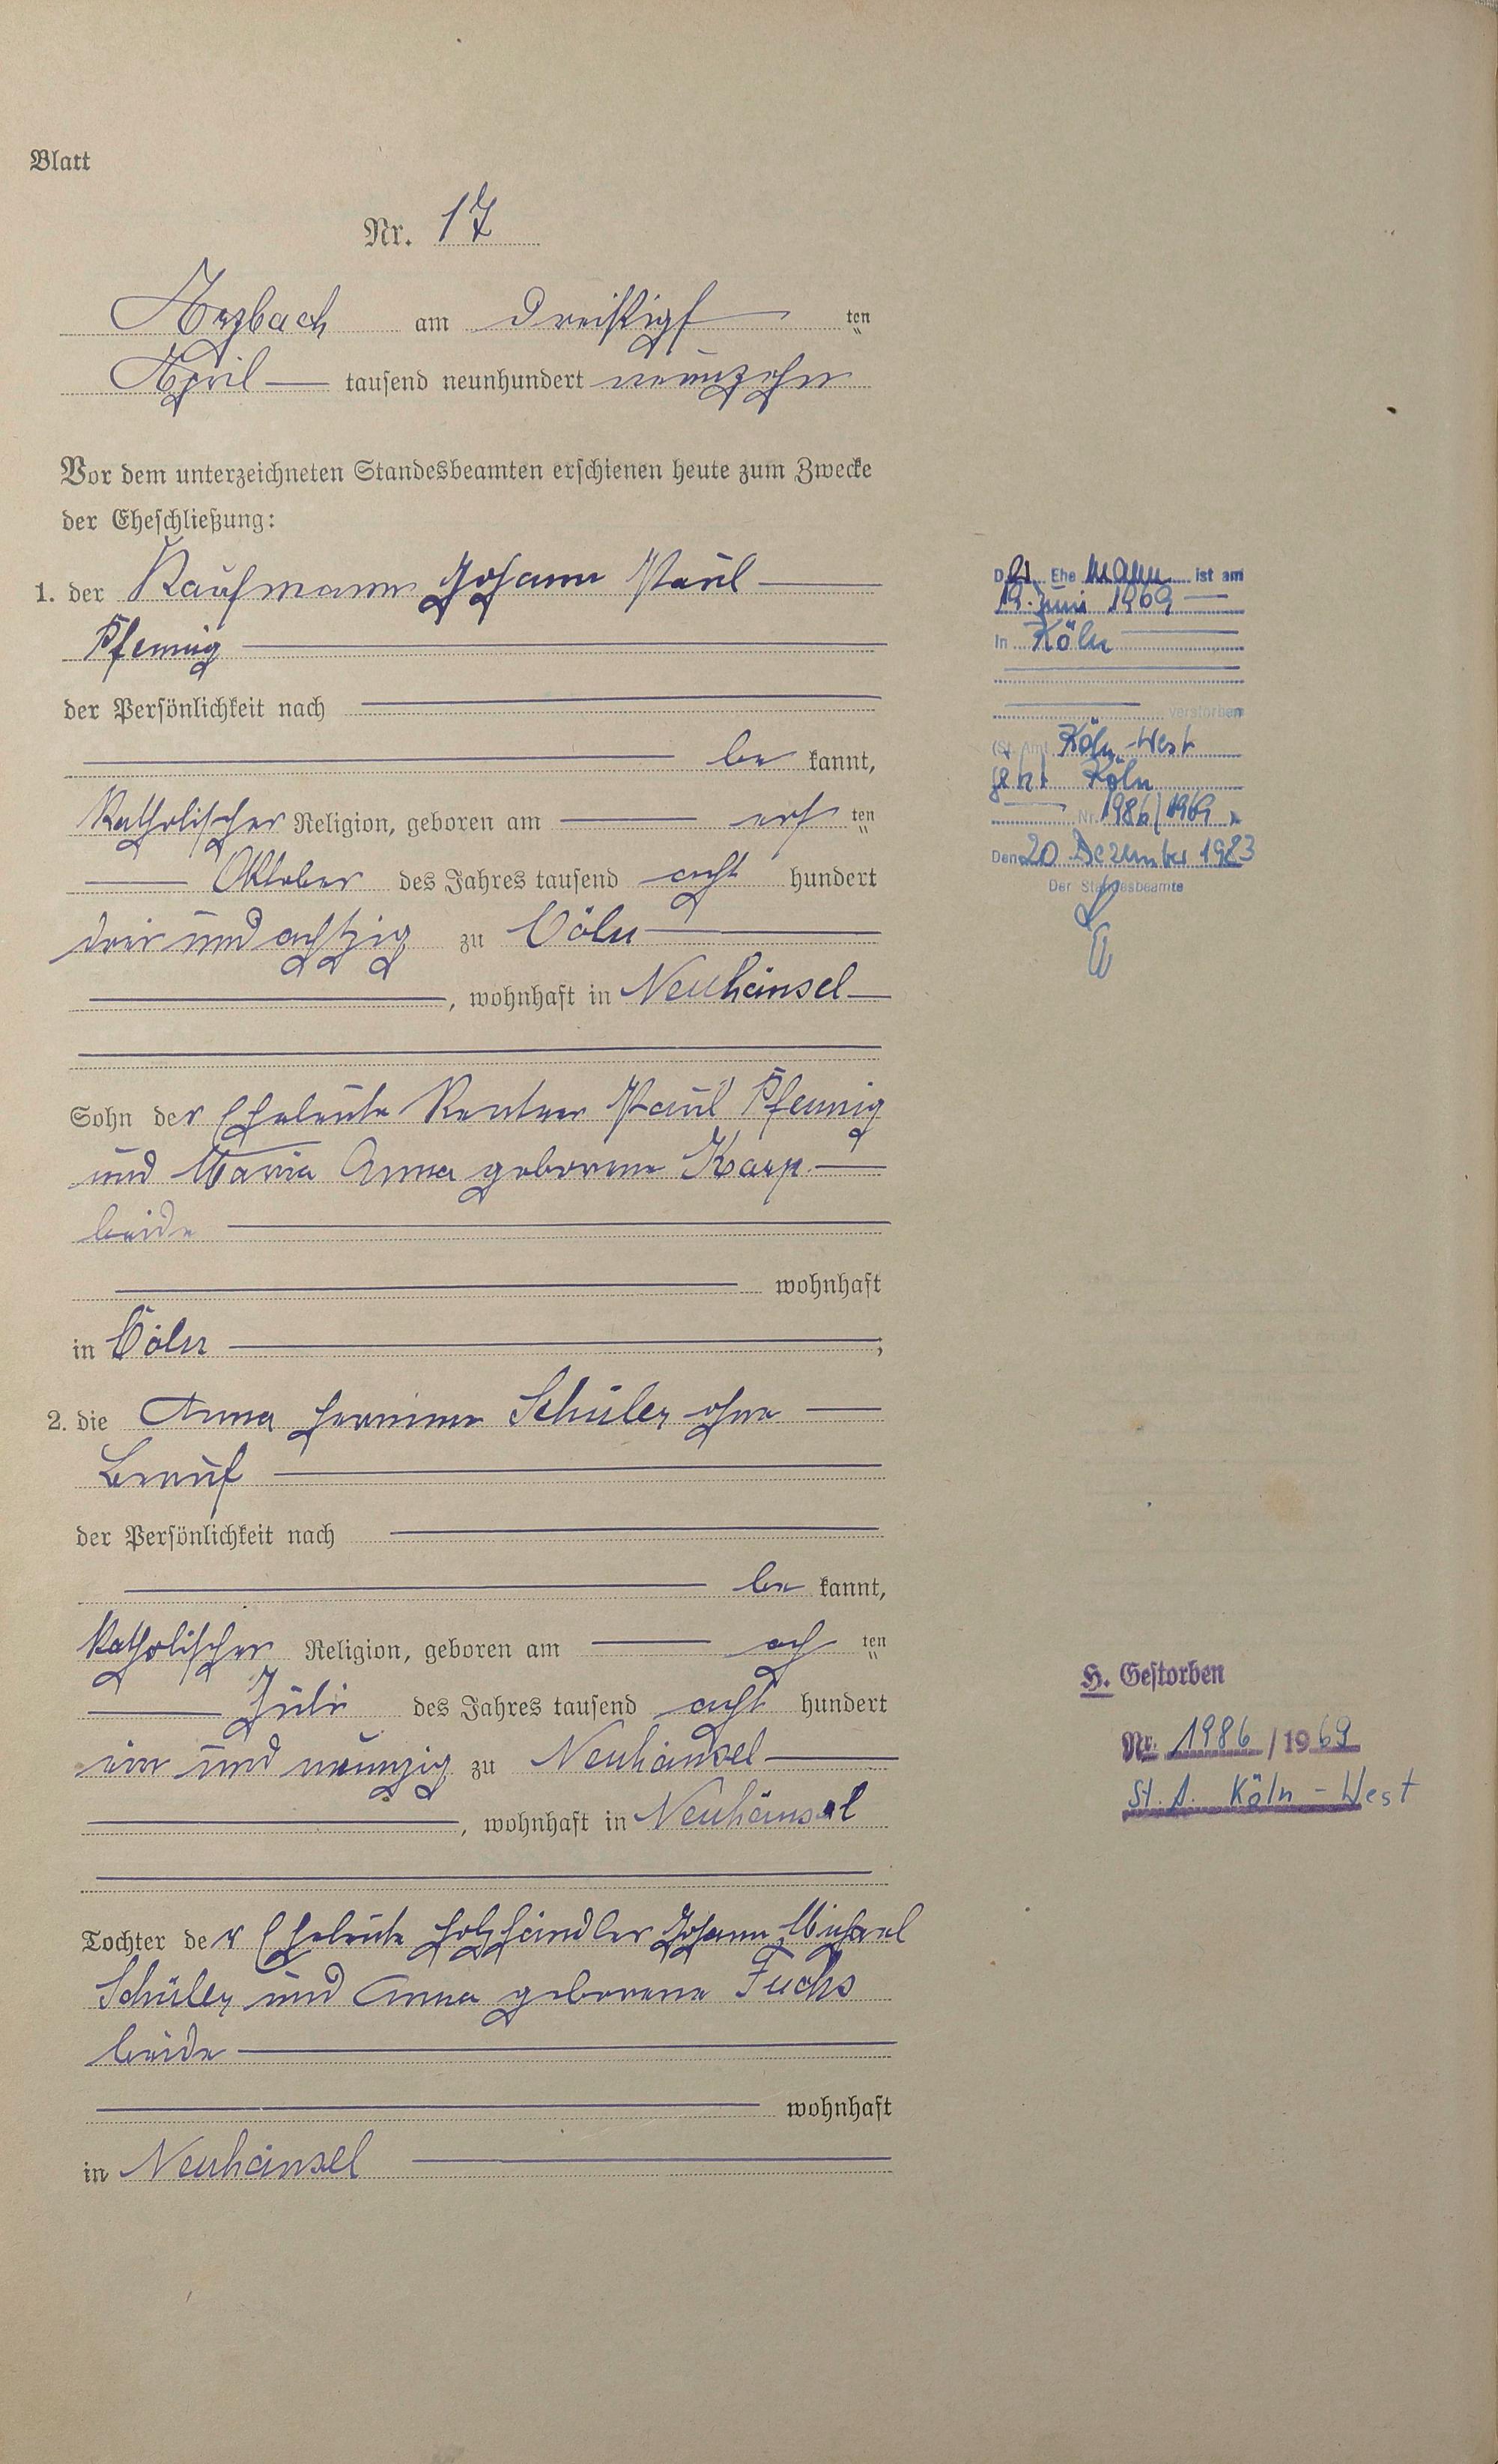 Blatt
Nr. 17
Arzbach am dreißigsten
April tausend neunhundert neunzehn
Vor dem unterzeichneten Standesbeamten erschienen heute zum Zwecke
der Eheschließung:
1. der Kaufmann Johann Paul
Pfennig
der Persönlichkeit nach
be kannt,
katholischer Religion, geboren am ersten
Oktober des Jahres tausend acht hundert
drei und achtzig zu Cöln
, wohnhaft in Neuhäusel
Sohn der Eheleute Rentner Paul Pfennig
und Maria Anna geborene Karp
beide
wohnhaft
in Cöln ;
2. die Anna Hermine Schüler ohne
Beruf
der Persönlichkeit nach
be kannt,
katholischer Religion, geboren am achten
Juli des Jahres tausend acht hundert
ein und neunzig zu Neuhäusel
, wohnhaft in Neuhäusel
Tochter der Eheleute Holzhändler Johann Michael
Schüler und Anna geborene Fuchs
beide
wohnhaft
in Neuhäusel
Der Ehemann ist am
19. Juni 1969
in Köln
verstorben
(St. Amt Köln-West
jetzt Köln
Nr. 1986/1969
Den 20 Dezember 1983
Der Standesbeamte
H. Gestorben
Nr. 1986/1969
St. A. Köln-West